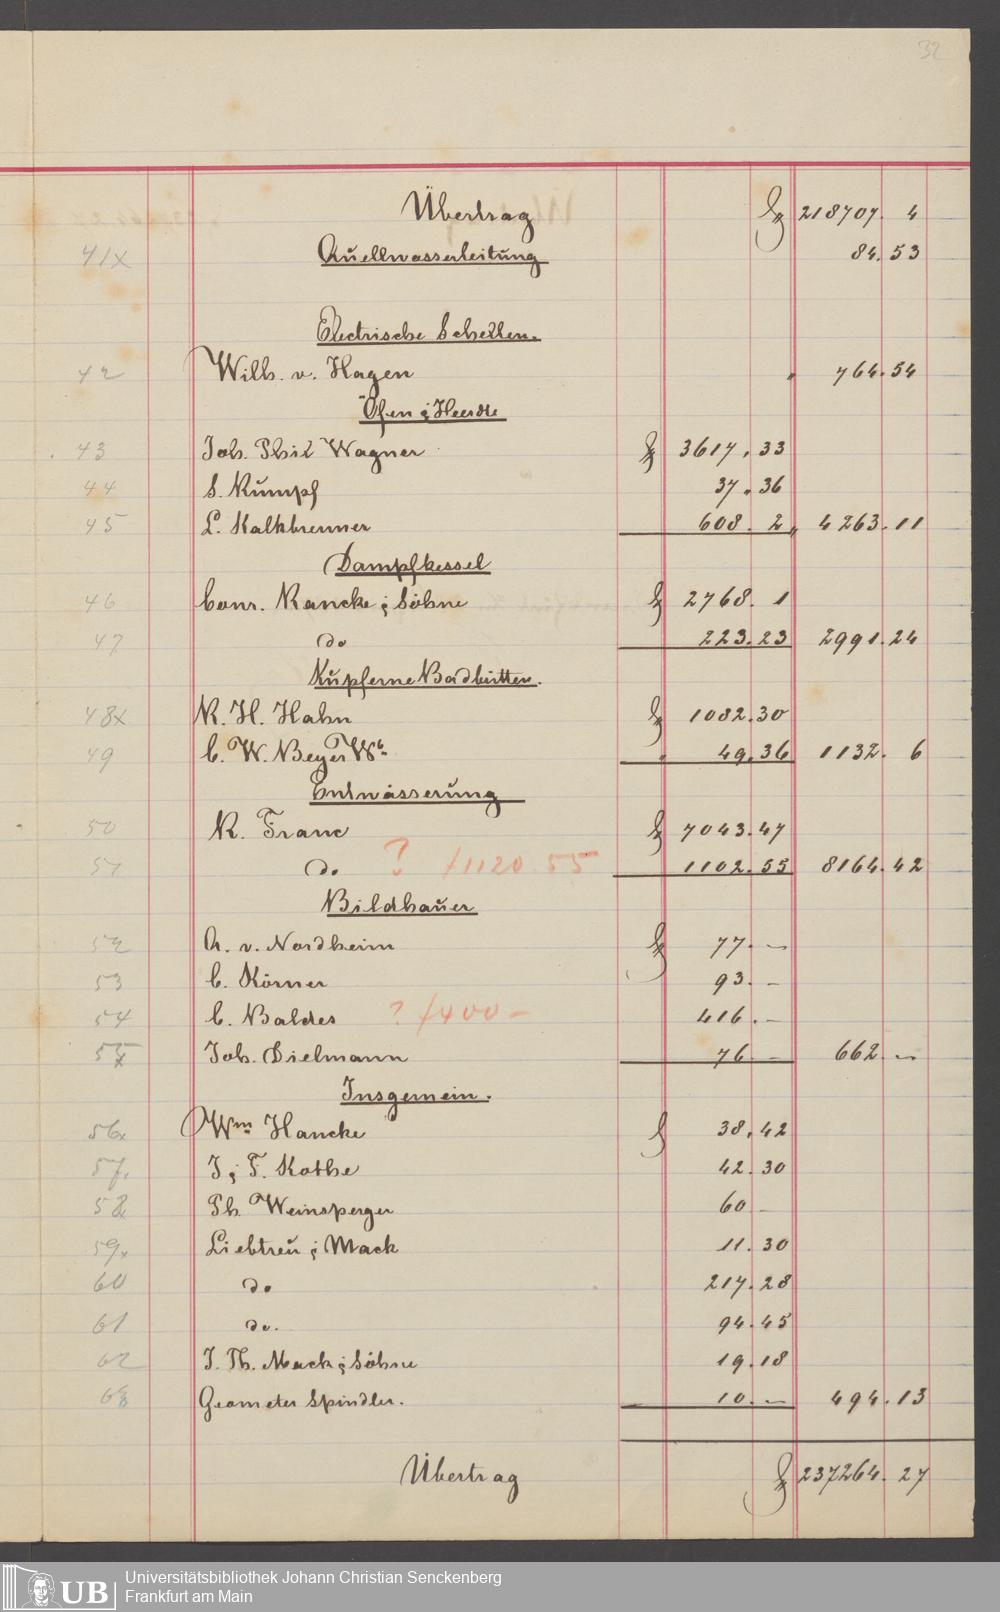 32
Übertrag fl 218707. 4
41x Quellwasserleitung 84. 53
Electrische Schellen.
42 Wilh. v. Hagen " 764. 54
Öfen & Heerde
43 Joh. Phil Wagner fl 3617. 33
44 S. Rumpf 37. 36
45 L. Kalkbrenner 608. 2 " 4263. 11
Dampfkessel
46 Conr. Rancke & Söhne fl 2768. 1
47 do 223. 23 2991. 24
Kupferne Badbütten.
48x R. H. Hahn fl 1082. 30
49 C. W. Beyer Wb. " 49. 36 1132. 6
Entwässerung
50 R. Franc fl 7043. 47
51 do ? f 1120. 55 1102. 55 8164. 42
Bildhauer
52 A. v. Nordheim fl 77. —
53 C. Körner 93. —
54 C. Baldes ? f 400 — 416. —
55x Joh. Dielmann 76 — 662. —
Insgemein.
56x Wm Hancke fl 38. 42
57. J & F. Kothe 42. 30
58x Ph. Weinsperger 60 —
59x Liebtreu & Mack 11. 30
60 do 217. 28
61 do. 94. 45
62 J. Th. Mack & Söhne 19. 18
63 Geometer Spindler. 10. — 494. 13
Übertrag fl 237264. 27
UB Universitätsbibliothek Johann Christian Senckenberg
Frankfurt am Main